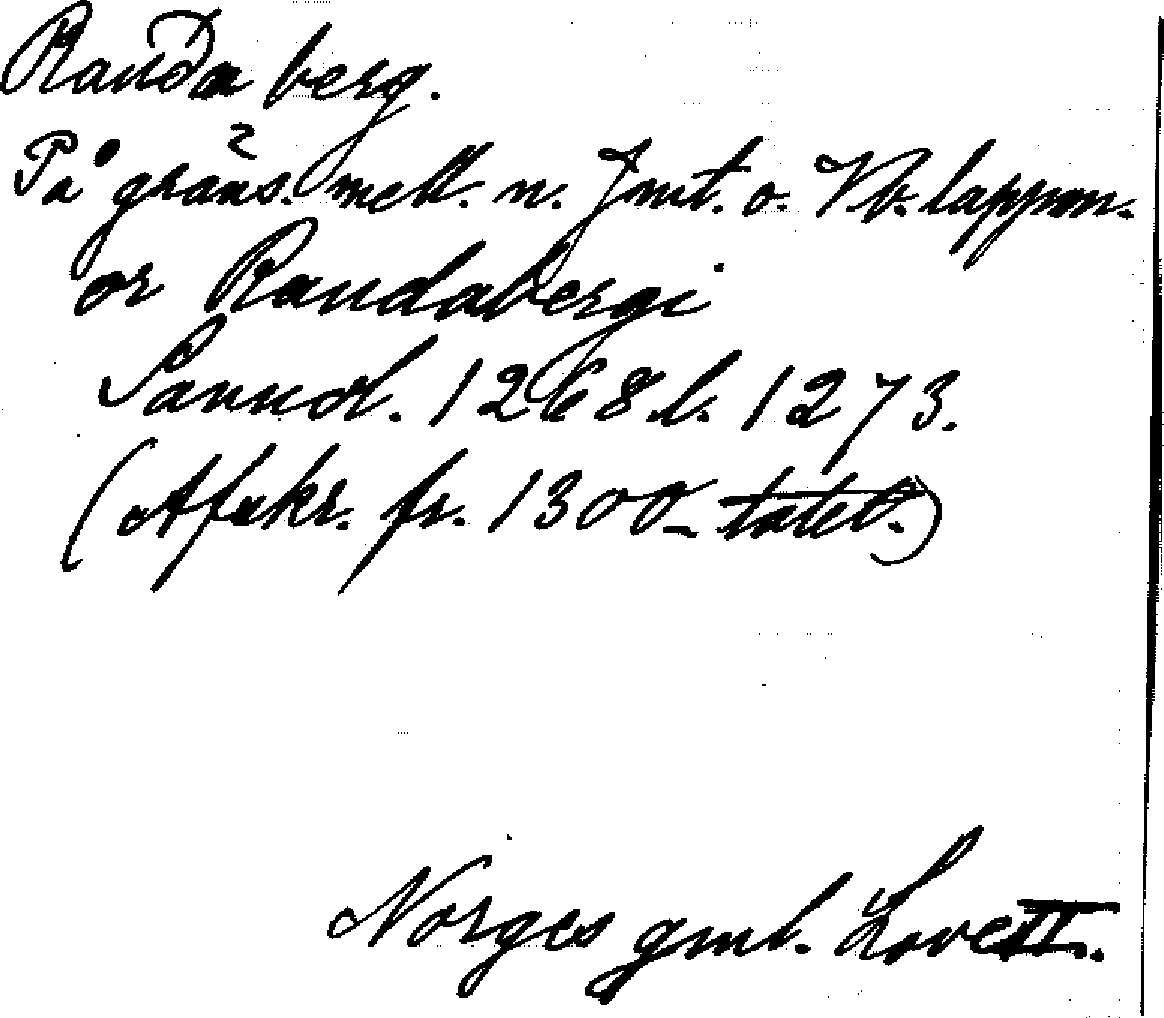 Randa berg.
På gräns. mell. n. Jmt. o. Vb. lappm.
or Randabergi
Sannol. 1268 l. 1273.
(Afskr. fr. 1300-talet.)
Norges gml. Love II.